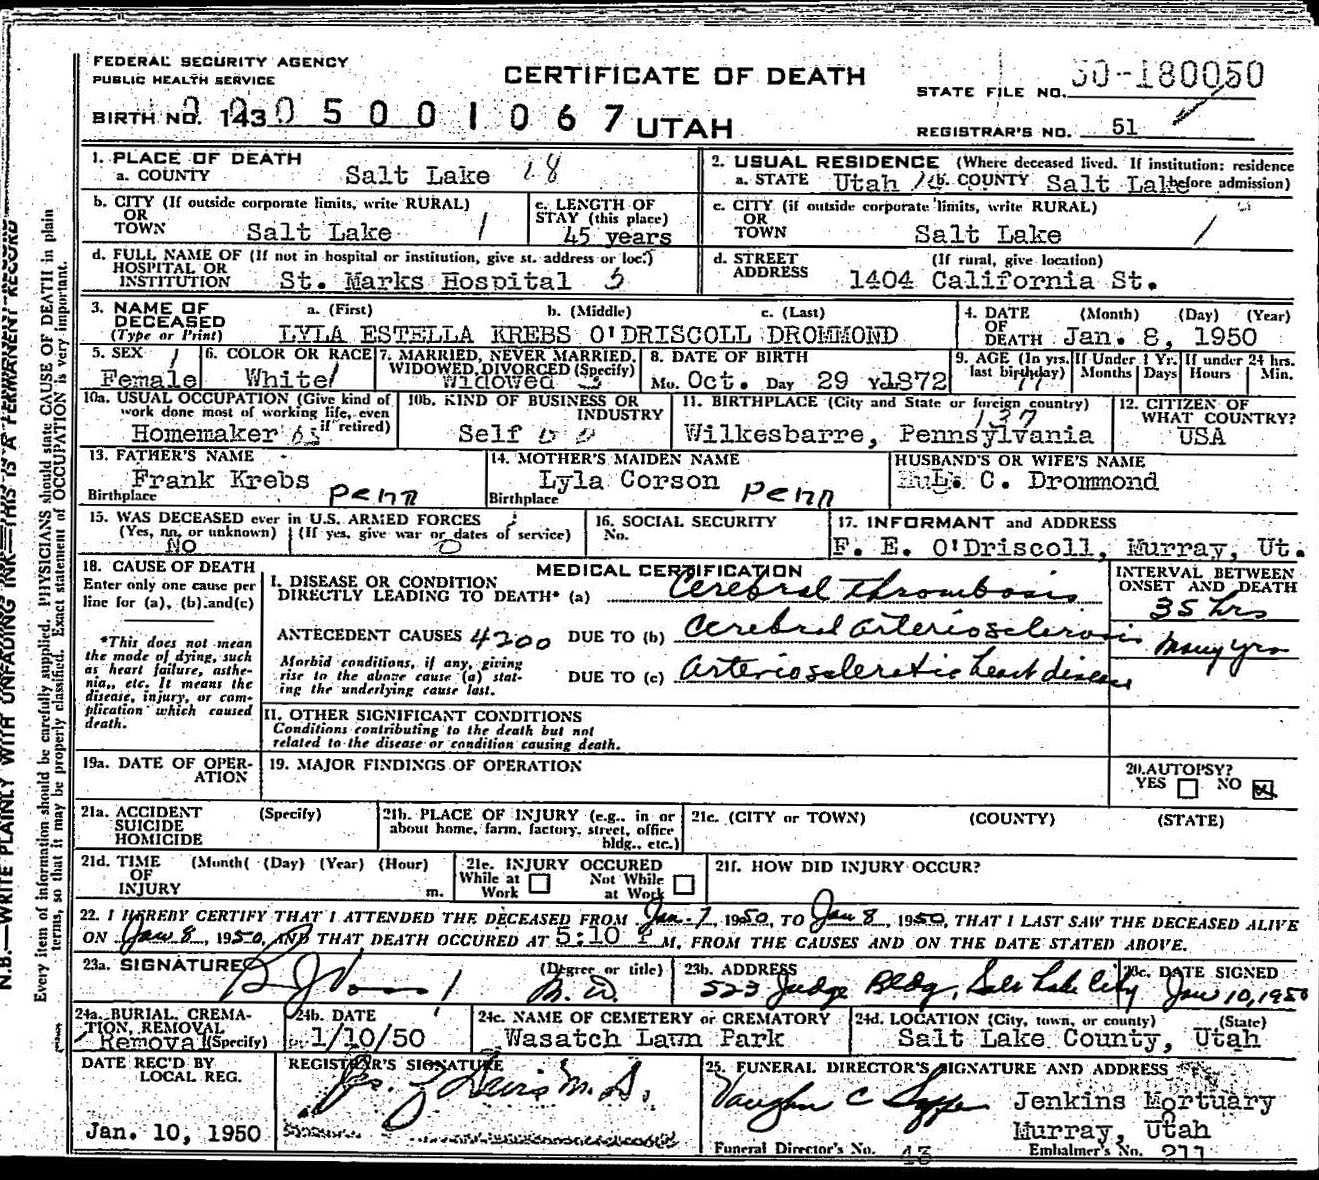 FEDERAL SECURITY AGENCY
PUBLIC HEALTH SERVICE
CERTIFICATE OF DEATH
STATE FILE NO. 50-180050
BIRTH NO. 143 0005001067 UTAH
REGISTRAR'S NO. 51
1. PLACE OF DEATH
a. COUNTY Salt Lake 18
2. USUAL RESIDENCE (Where deceased lived. If institution: residence before admission)
a. STATE Utah b. COUNTY Salt Lake
b. CITY (If outside corporate limits, write RURAL)
OR
TOWN Salt Lake 1
c. LENGTH OF
STAY (this place)
45 years
c. CITY (if outside corporate limits, write RURAL)
OR
TOWN Salt Lake 1
d. FULL NAME OF (If not in hospital or institution, give st. address or loc.)
HOSPITAL OR
INSTITUTION St. Marks Hospital 5
d. STREET (If rural, give location)
ADDRESS 1404 California St.
3. NAME OF a. (First) b. (Middle) c. (Last)
DECEASED
(Type or Print) LYLA ESTELLA KREBS O'DRISCOLL DROMMOND
4. DATE (Month) (Day) (Year)
OF
DEATH Jan. 8, 1950
5. SEX 1
Female
6. COLOR OR RACE
White
7. MARRIED, NEVER MARRIED,
WIDOWED, DIVORCED (Specify)
Widowed 3
8. DATE OF BIRTH
Mo. Oct. Day 29 Yr. 1872
9. AGE (In yrs. last birthday) 77
If Under 1 Yr. Months Days
If under 24 hrs. Hours Min.
10a. USUAL OCCUPATION (Give kind of
work done most of working life, even
if retired)
Homemaker
10b. KIND OF BUSINESS OR
INDUSTRY
Self
11. BIRTHPLACE (City and State or foreign country)
137
Wilkesbarre, Pennsylvania
12. CITIZEN OF
WHAT COUNTRY?
USA
13. FATHER'S NAME
Frank Krebs
Birthplace Penn
14. MOTHER'S MAIDEN NAME
Lyla Corson
Birthplace Penn
HUSBAND'S OR WIFE'S NAME
C. Drommond
15. WAS DECEASED ever in U.S. ARMED FORCES
(Yes, no, or unknown) (If yes, give war or dates of service)
NO 0
16. SOCIAL SECURITY
No.
17. INFORMANT and ADDRESS
F. E. O'Driscoll, Murray, Ut.
18. CAUSE OF DEATH
Enter only one cause per
line for (a), (b) and (c)
*This does not mean
the mode of dying, such
as heart failure, asthe-
nia, etc. It means the
disease, injury, or com-
plication which caused
death.
MEDICAL CERTIFICATION
I. DISEASE OR CONDITION
DIRECTLY LEADING TO DEATH* (a) Cerebral Thrombosis
ANTECEDENT CAUSES 4200 DUE TO (b) Cerebral arteriosclerosis
Morbid conditions, if any, giving
rise to the above cause (a) stat-
ing the underlying cause last.
DUE TO (c) Arteriosclerotic heart disease
INTERVAL BETWEEN
ONSET AND DEATH
35 hrs
Many yrs
II. OTHER SIGNIFICANT CONDITIONS
Conditions contributing to the death but not
related to the disease or condition causing death.
19a. DATE OF OPER-
ATION
19. MAJOR FINDINGS OF OPERATION
20. AUTOPSY?
YES NO
21a. ACCIDENT (Specify)
SUICIDE
HOMICIDE
21b. PLACE OF INJURY (e.g., in or
about home, farm, factory, street, office
bldg., etc.)
21c. (CITY or TOWN) (COUNTY) (STATE)
21d. TIME (Month( (Day) (Year) (Hour)
OF
INJURY m.
21e. INJURY OCCURED
While at Work Not While at Work
21f. HOW DID INJURY OCCUR?
22. I HEREBY CERTIFY THAT I ATTENDED THE DECEASED FROM Jan. 7, 1950, TO Jan 8, 1950, THAT I LAST SAW THE DECEASED ALIVE
ON Jan 8, 1950, AND THAT DEATH OCCURED AT 5:10 P M, FROM THE CAUSES AND ON THE DATE STATED ABOVE.
23a. SIGNATURE (Degree or title) M.D.
23b. ADDRESS
523 Judge Bldg, Salt Lake City
23c. DATE SIGNED
Jan 10, 1950
24a. BURIAL, CREMA-
TION, REMOVAL
Removal (Specify)
24b. DATE
1/10/50
24c. NAME OF CEMETERY or CREMATORY
Wasatch Lawn Park
24d. LOCATION (City, town, or county) (State)
Salt Lake County, Utah
DATE REC'D BY
LOCAL REG.
Jan. 10, 1950
REGISTRAR'S SIGNATURE
M. D.
25. FUNERAL DIRECTOR'S SIGNATURE AND ADDRESS
Vaughn C
Jenkins Mortuary
Murray, Utah
Funeral Director's No. 43 Embalmer's No. 211
N.B.—WRITE PLAINLY WITH UNFADING INK—THIS IS A PERMANENT RECORD
Every item of information should be carefully supplied. PHYSICIANS should state CAUSE OF DEATH in plain
terms, so that it may be properly classified. Exact statement of OCCUPATION is very important.